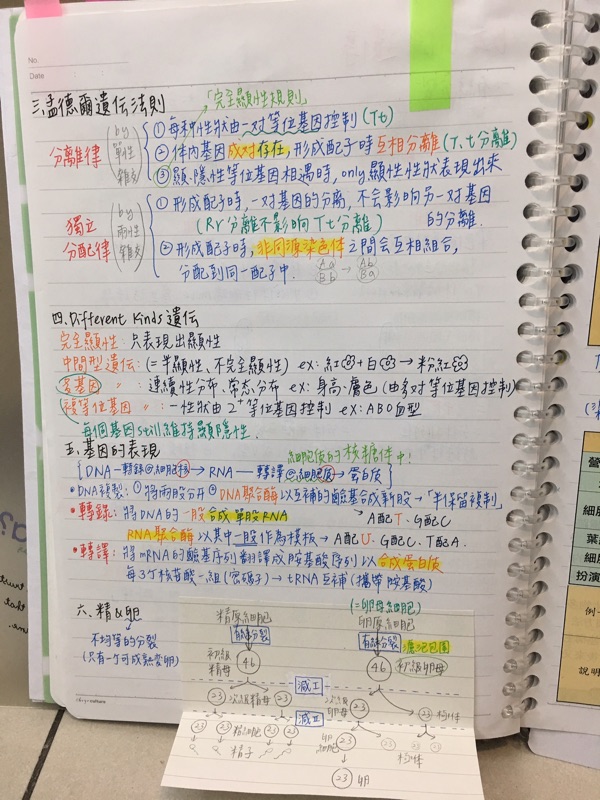 No.
Date
三.孟德爾遺伝法則
「完全顯性規則」
分離律 (by 單性雜交)
① 每種性狀由一对等位基因控制(Tt)
② 体內基因成对存在,形成配子時互相分離(T、t分離)
③ 顯、隱性等位基因相遇時,only顯性性狀表現出來
獨立分配律 (by 兩性雜交)
① 形成配子時,一对基因的分离,不会影响另一对基因的分离.
(Rr分離不影响Tt分離)
② 形成配子時,非同源染色体之間会互相組合,
分配到同一配子中.
Aa Bb → Ab Ba
四.Different Kinds遺伝
完全顯性:只表現出顯性
中間型遺伝:(=半顯性、不完全顯性) ex:紅+白→粉紅
多基因〃:連續性分布、常态分布 ex:身高、膚色(由多对等位基因控制)
複等位基因〃:一性狀由2⁺等位基因控制 ex:ABO血型
每個基因still維持顯隱性.
五.基因的表現
細胞质的核糖体中!
[DNA—轉錄@細胞核→RNA—轉譯@細胞质→蛋白质]
•DNA複製:①將兩股分开②DNA聚合酶以互補的鹼基合成新股→「半保留複制」
•轉錄:將DNA的一股合成單股RNA
A配T、G配C
RNA聚合酶以其中一股作為模板→A配U、G配C、T配A.
•轉譯:將mRNA的鹼基序列翻譯成胺基酸序列以合成蛋白质
每3个核苷酸一組(密碼子)→tRNA互補(攜帶胺基酸)
六.精&卵
不均等的分裂
(只有一个可成熟為卵)
精原細胞
有絲分裂
初級精母 46
減I
23 次級精母 23
減II
23 23 精細胞 23 23
精子
(=卵母細胞)
卵原細胞
有絲分裂
46 初級卵母
次級卵母 23 23 极体
卵細胞 23
极体
23 卵